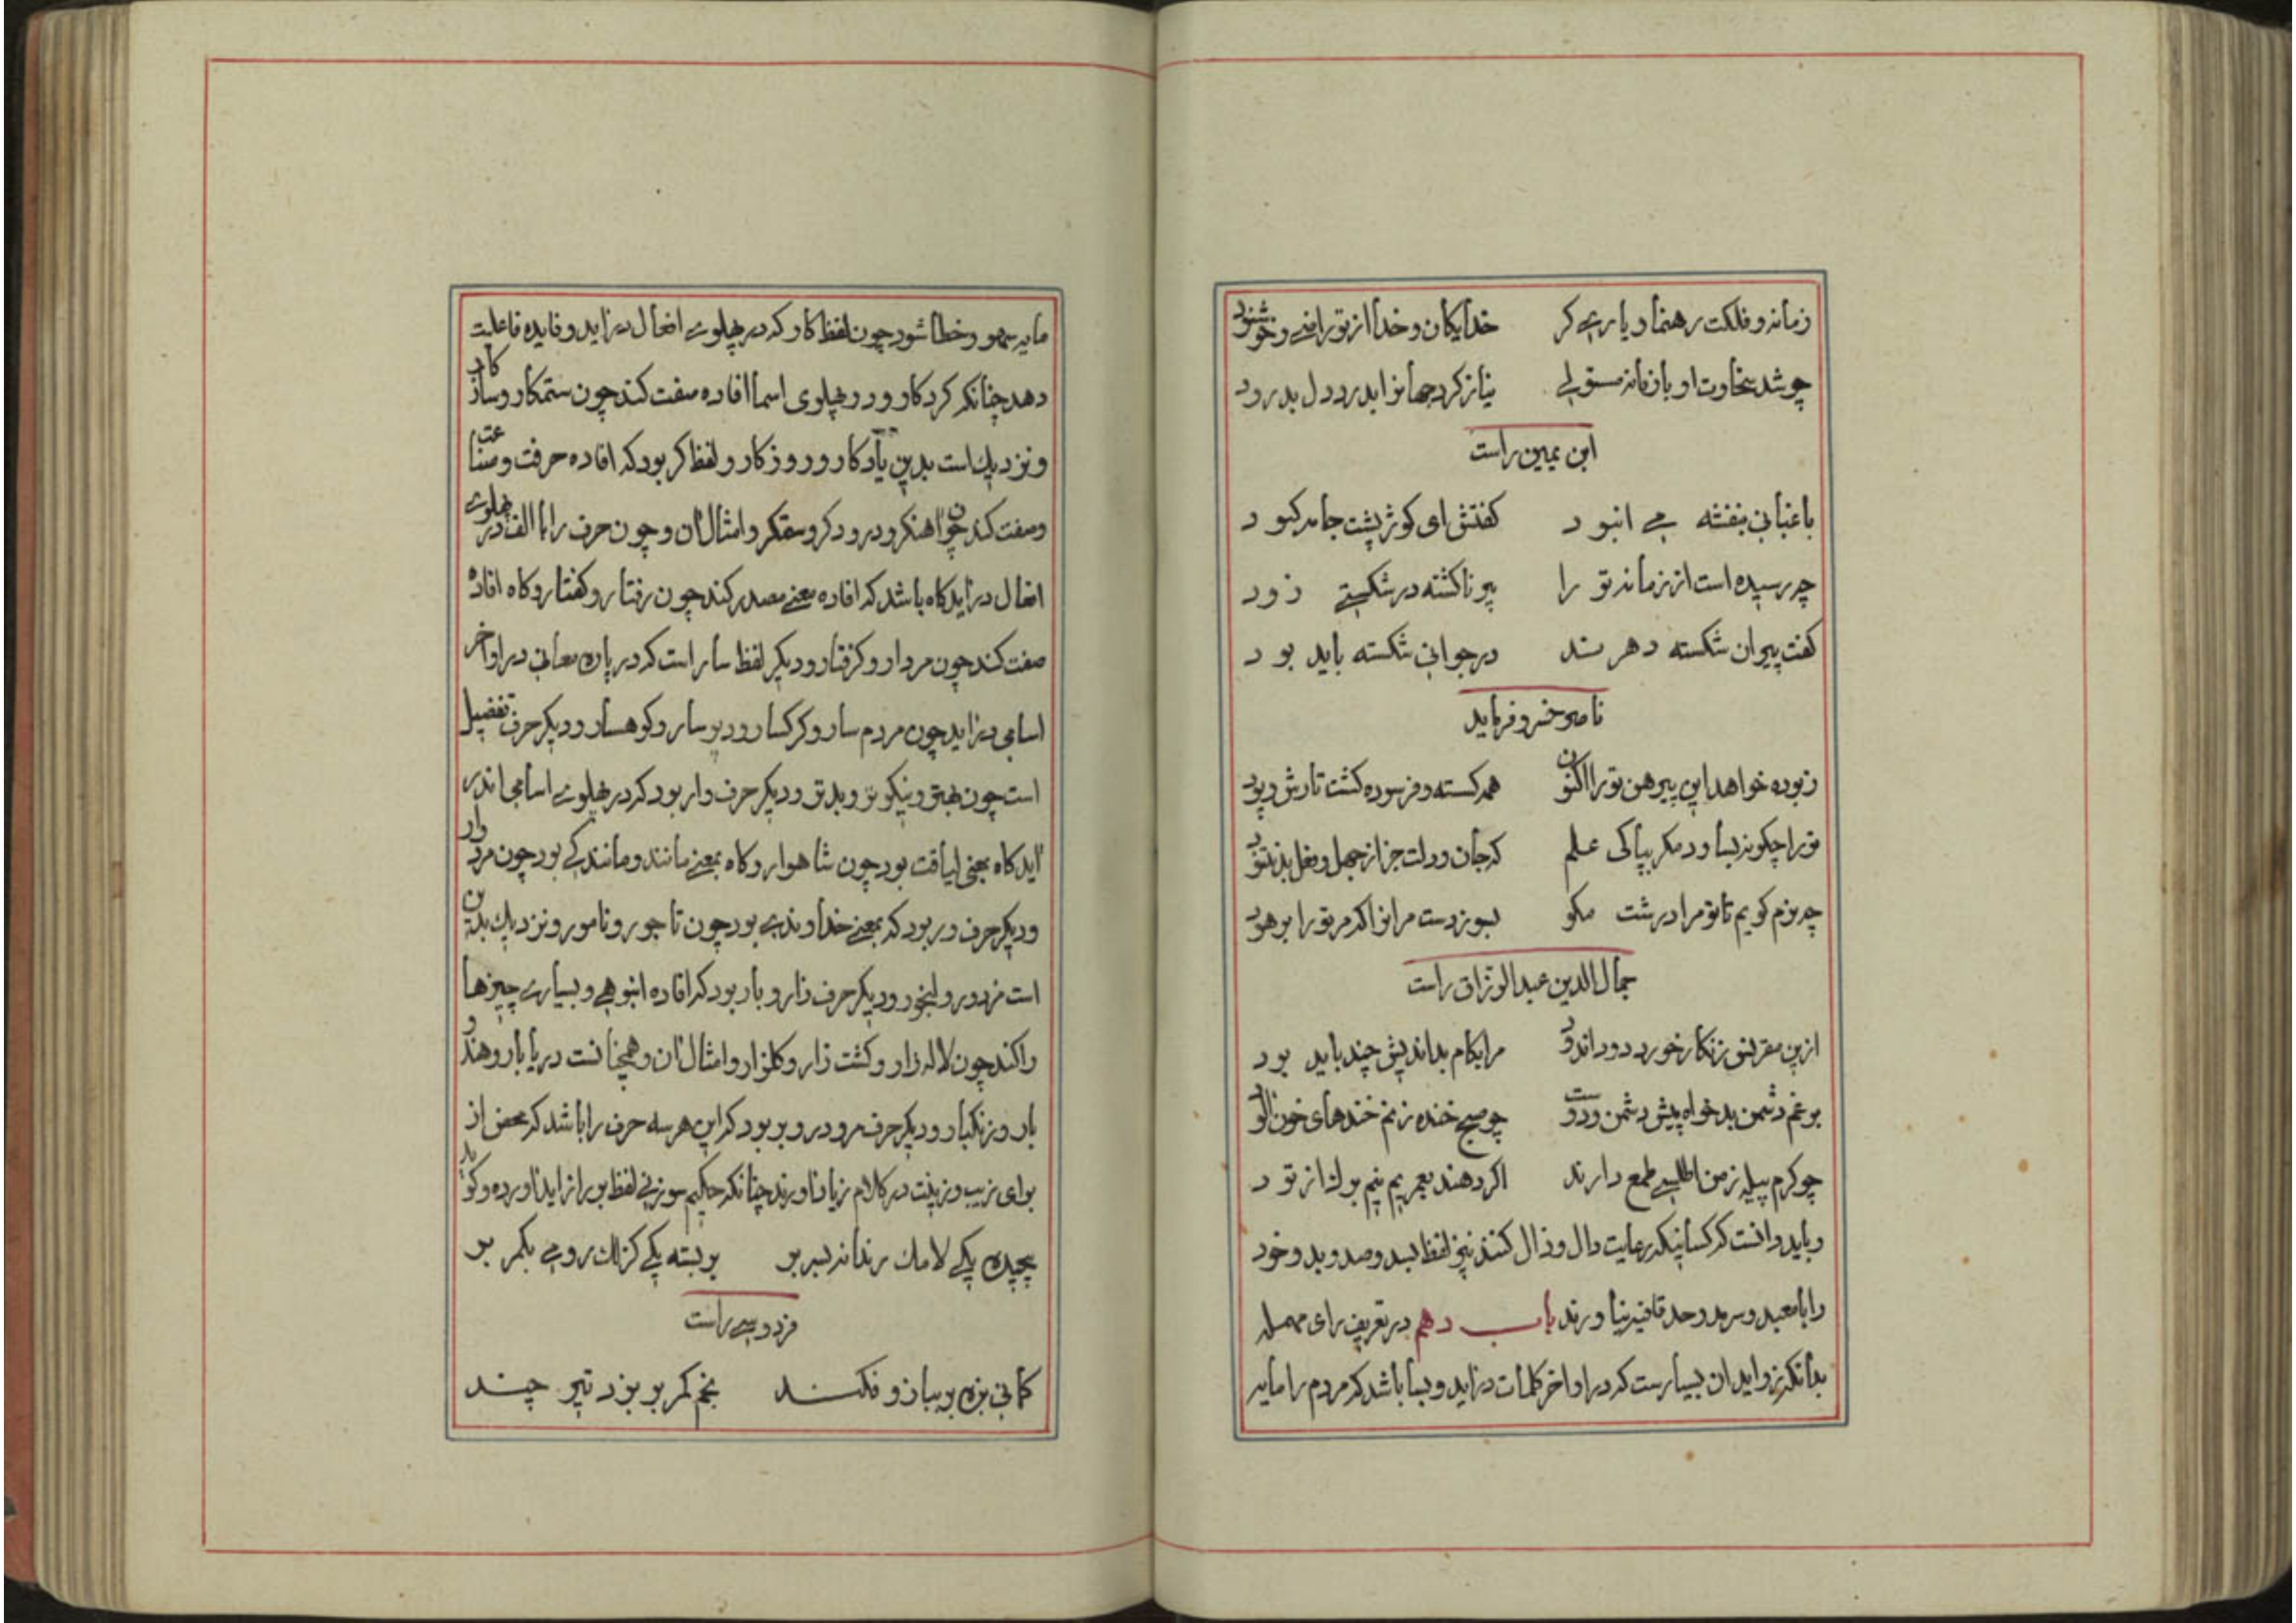 زمانه و فلکت رهنما و یاری کر خدایکان و خدا از تو راضی و خوشنود
چو شد سخاوت او بازمانه مستولی نیاز کرد جهانرا بدرد دل بدرود
ابن یمین راست
باغبانی بنفشه می انبود کفتش ای کوژ پشت جامه کبود
چه رسیده است از زمانه تو را پیر ناکشته در شکستی زود
کفت پیران شکسته دهرند در جوانی شکسته باید بود
ناصر خسرو فرماید
ربوده خواهد این پیرهن تو را اکنون همه کسسته و فرسوده کشت تارش و پود
تو را چکونه بساود مکر بپاکی علم که جان و دلت جز از جهل و بخل نپسود
چه نرم کویم تا تو مرا درشت مکو مرانرا که مر تو را
جمال الدین عبدالرزاق راست
ازین مقرنس زنکار خورد دود اندود مرا بکام بداندیش چند باید بود
برغم دشمن بدخواه پیش دشمن و دوست چو صبح خنده زنم خندهای خون آلود
چو کرم پیله ز من اطلسی طمع دارند اکر دهند بعمریم نیم برک از تود
و باید دانست که کسانیکه رعایت دال و ذال کنند نیز لفظ بسد و صد و بد و خود
را با معبد و سرمد و حد قافیه نیاورند باب دهم در تعریف رای مهمله
بدانکه زواید ان بسیارست که در اواخر کلمات در اید و بسا باشد که مردم را مایه
مایه سهو و خطا شود چون لفظ کار که در پهلوی افعال در اید و فایده فاعلیت
دهد چنانکه کردکار و در پهلوی اسما افاده صفت کند چون ستمکار و سازکار
و نزدیک است بدین یادکار و روزکار و لفظ کر بود که افاده حرفت و صناعت
و صفت کند چون اهنکر و درودکر و ستمکر و امثال ان و چون حرف را با الف در پهلوی
افعال در اید کاه باشد که افاده معنی مصدر کند چون رفتار و کفتار و کاه افاده
صفت کند چون مردار و کرفتار و دیکر لفظ سار است که در پاره معانی در اواخر
اسامی در اید چون مردم سار و کرکسار و دیو سار و کوهسار و دیکر حرف تفضیل
است چون بهتر و نیکوتر و بدتر و دیکر حرف وار بود که در پهلوی اسامی اندر
اید کاه بمعنی لیاقت بود چون شاهوار و کاه بمعنی مانند و مانندکی بود چون مردوار
و دیکر حرف ور بود که بمعنی خداوندی بود چون تاجور و نامور و نزدیک بدین
است مزدور و رنجور و دیکر حرف زار و بار بود که افاده انبوهی و بسیاری چیزها
را کند چون لاله زار و کشت زار و کلزار و امثال ان و همچنانست دریا بار و هندو
بار و زنکبار و دیکر حرف مر و در و بر بود که این هر سه حرف را باشد که محض از
برای زیب و زینت در کلام زیاد اورند چنانکه حکیم سوزنی لفظ بر را زاید اورده و کوید
پیچیده یکی لامک رندانه بسر بر بر بسته یکی کزلک رومی بکمر بر
فردوسی راست
کمانی بزه بر ببازو فکند به بند کمر بر بزد تیر چند